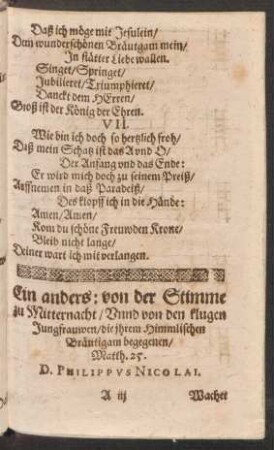 Daß ich möge mit Jesulein/
Dem wunderschönen Bräutgam mein/
In stätter Liebe wallen.
Singet/Springet/
Jubilieret/Triumphieret/
Danckt dem HErren/
Groß ist der König der Ehren.
VII.
Wie bin ich doch so hertzlich froh/
Daß mein Schatz ist das A vnd O/
Der Anfang vnd das Ende:
Er wird mich doch zu seinem Preiß/
Auffnemen in daß Paradeiß/
Des klopff ich in die Hände:
Amen/Amen/
Kom du schöne Freuwden Krone/
Bleib nicht lange/
Deiner wart ich mit verlangen.
Ein anders: von der Stimme
zu Mitternacht/Vnnd von den klugen
Jungfrauwen/die jhrem Himmlischen
Bräutigam begegenen/
Matth. 25.
D. PHILIPPVS NICOLAI.
A iij Wachet